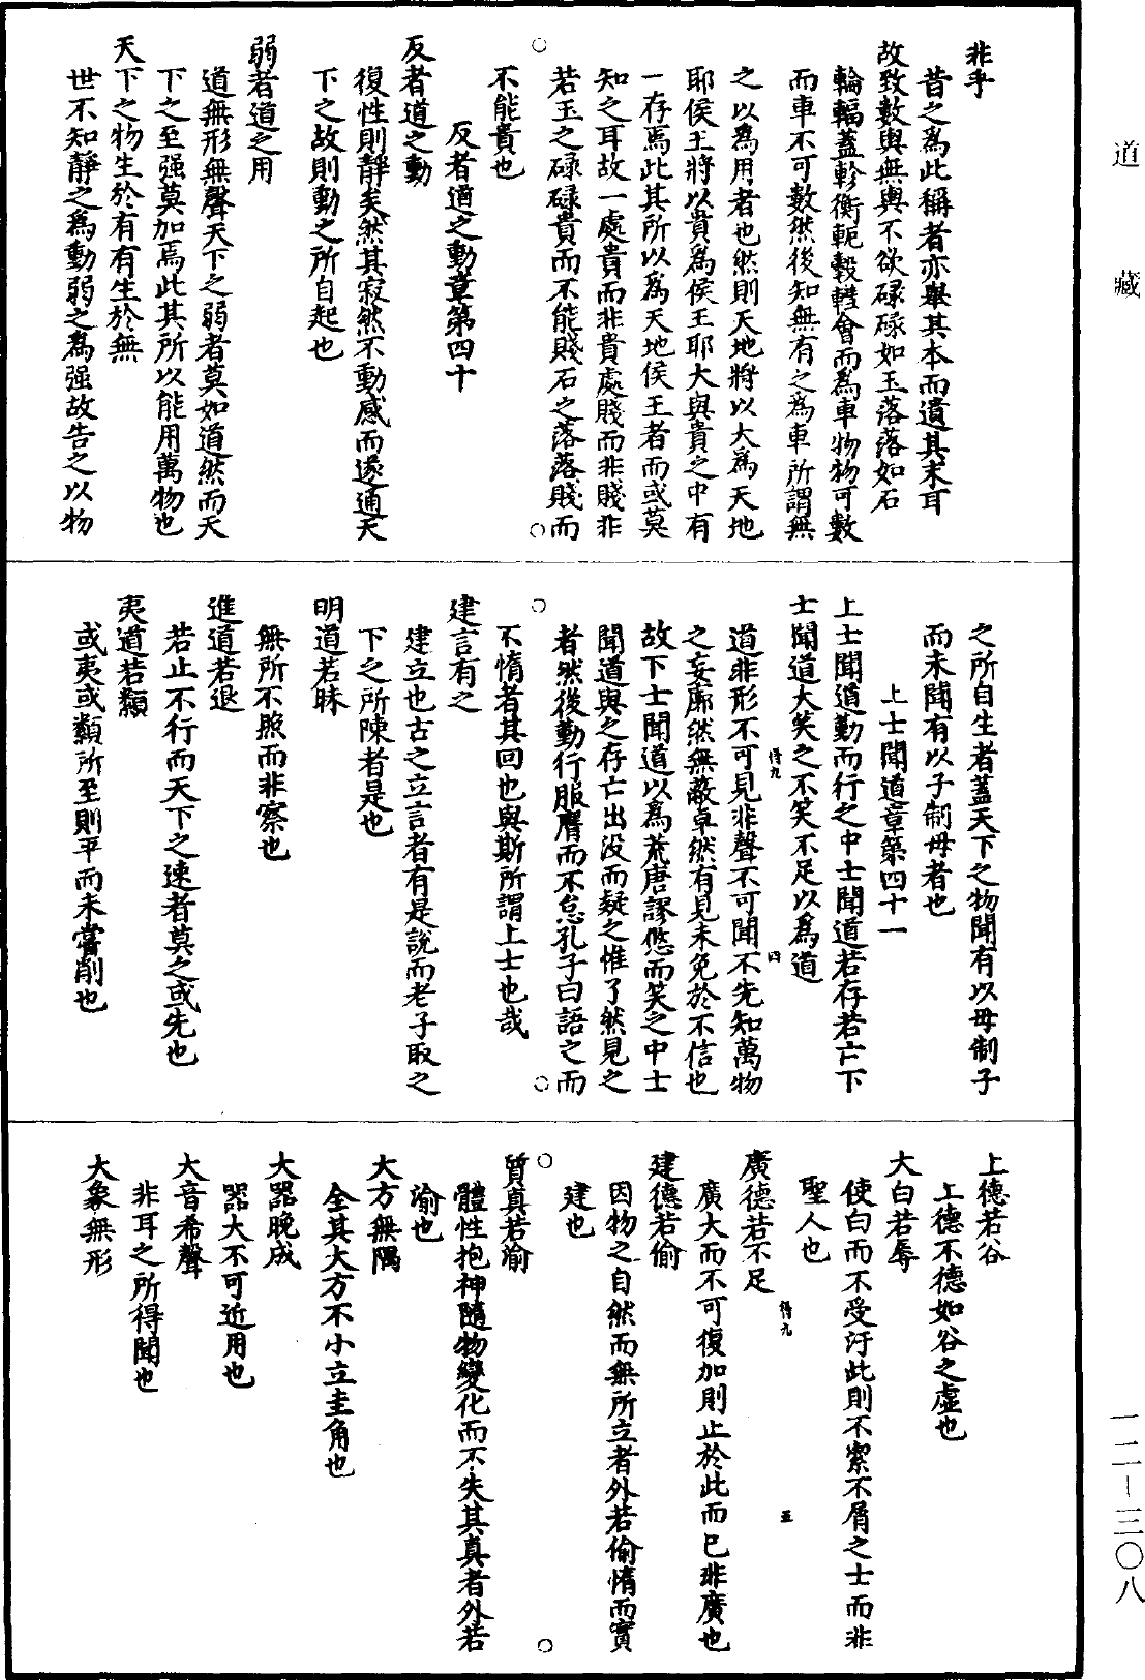 道藏
一二－三〇八
非乎
昔之爲此稱者亦舉其本而遺其末耳
故致數輿無輿不欲碌碌如玉落落如石
輪輻蓋軫衡軛轂轊會而爲車物物可數
而車不可數然後知無有之爲車所謂無
之以爲用者也然則天地將以大爲天地
耶侯王將以貴爲侯王耶大與貴之中有
一存焉此其所以爲天地侯王者而或莫
知之耳故一處貴而非貴處賤而非賤非
若玉之碌碌貴而不能賤石之落落賤而
不能貴也
反者道之動章第四十
反者道之動
復性則靜矣然其寂然不動感而遂通天
下之故則動之所自起也
弱者道之用
道無形無聲天下之弱者莫如道然而天
下之至强莫加焉此其所以能用萬物也
天下之物生於有有生於無
世不知靜之爲動弱之爲强故告之以物
之所自生者蓋天下之物聞有以母制子
而未聞有以子制母者也
上士聞道章第四十一
上士聞道勤而行之中士聞道若存若亡下
士聞道大笑之不笑不足以爲道
得九
四
道非形不可見非聲不可聞不先知萬物
之妄廓然無蔽卓然有見未免於不信也
故下士聞道以爲荒唐謬悠而笑之中士
聞道與之存亡出没而疑之惟了然見之
者然後勤行服膺而不怠孔子曰語之而
不惰者其回也與斯所謂上士也哉
建言有之
建立也古之立言者有是說而老子取之
下之所陳者是也
明道若昧
無所不照而非察也
進道若退
若止不行而天下之速者莫之或先也
夷道若纇
或夷或纇所至則平而未嘗削也
上德若谷
上德不德如谷之虛也
大白若辱
使白而不受汙此則不絜不屑之士而非
聖人也
廣德若不足
得九
五
廣大而不可復加則止於此而已非廣也
建德若偷
因物之自然而無所立者外若偷惰而實
建也
質真若渝
體性抱神隨物變化而不失其真者外若
渝也
大方無隅
全其大方不小立圭角也
大器晚成
器大不可近用也
大音希聲
非耳之所得聞也
大象無形